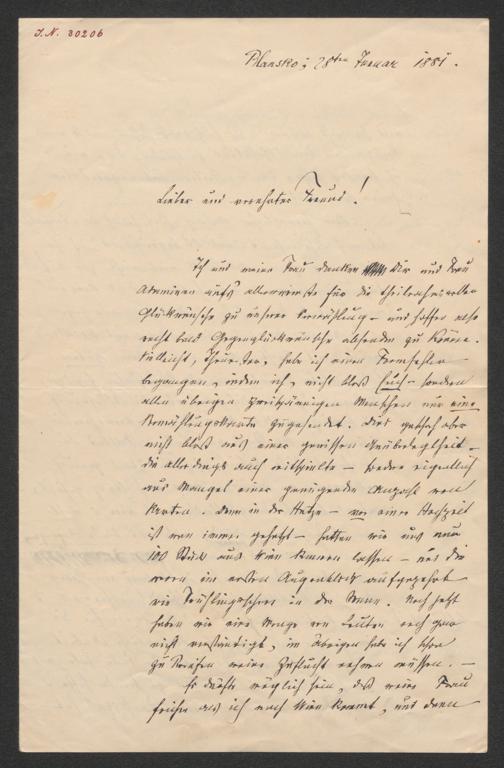 I.N. 30206
Blansko, 28ten Januar 1881.
Lieber und verehrter Freund!
Ich und meine Frau danken Dir und Frau
aufs allerwärmste für die theilnahmsvollen
Glückwünsche zu unserer Vermählung – und hoffen
recht bald Gegenglückwünsche absenden zu können.
Vielleicht, habe ich einen Formfehler
begangen, indem ich, nicht bloß Euch – sondern
allen übrigen zweispännigen Menschen nur eine
Vermählungskarte zugesendet. Dies geschah aber
nicht bloß aus einer gewissen Unbeholfenheit –
die allerdings auch mitspielte – sondern eigentlich
aus Mangel einer genügenden Anzahl von
Karten. Denn in der Hetze – vor einer Hochzeit
ist man immer gehetzt – hatten wir uns nur
100 Stück aus Wien kommen lassen – und die
waren im ersten Augenblick aufgezehrt
wie Frühlingsschnee in der Sonne. Noch jetzt
haben wir eine Menge von Leuten noch gar
nicht verständigt, im übrigen habe ich schon
zu Briefen meine Zuflucht nehmen müssen. –
Es dürfte möglich sein, daß meine Frau
früher als ich nach Wien kommt, und dann